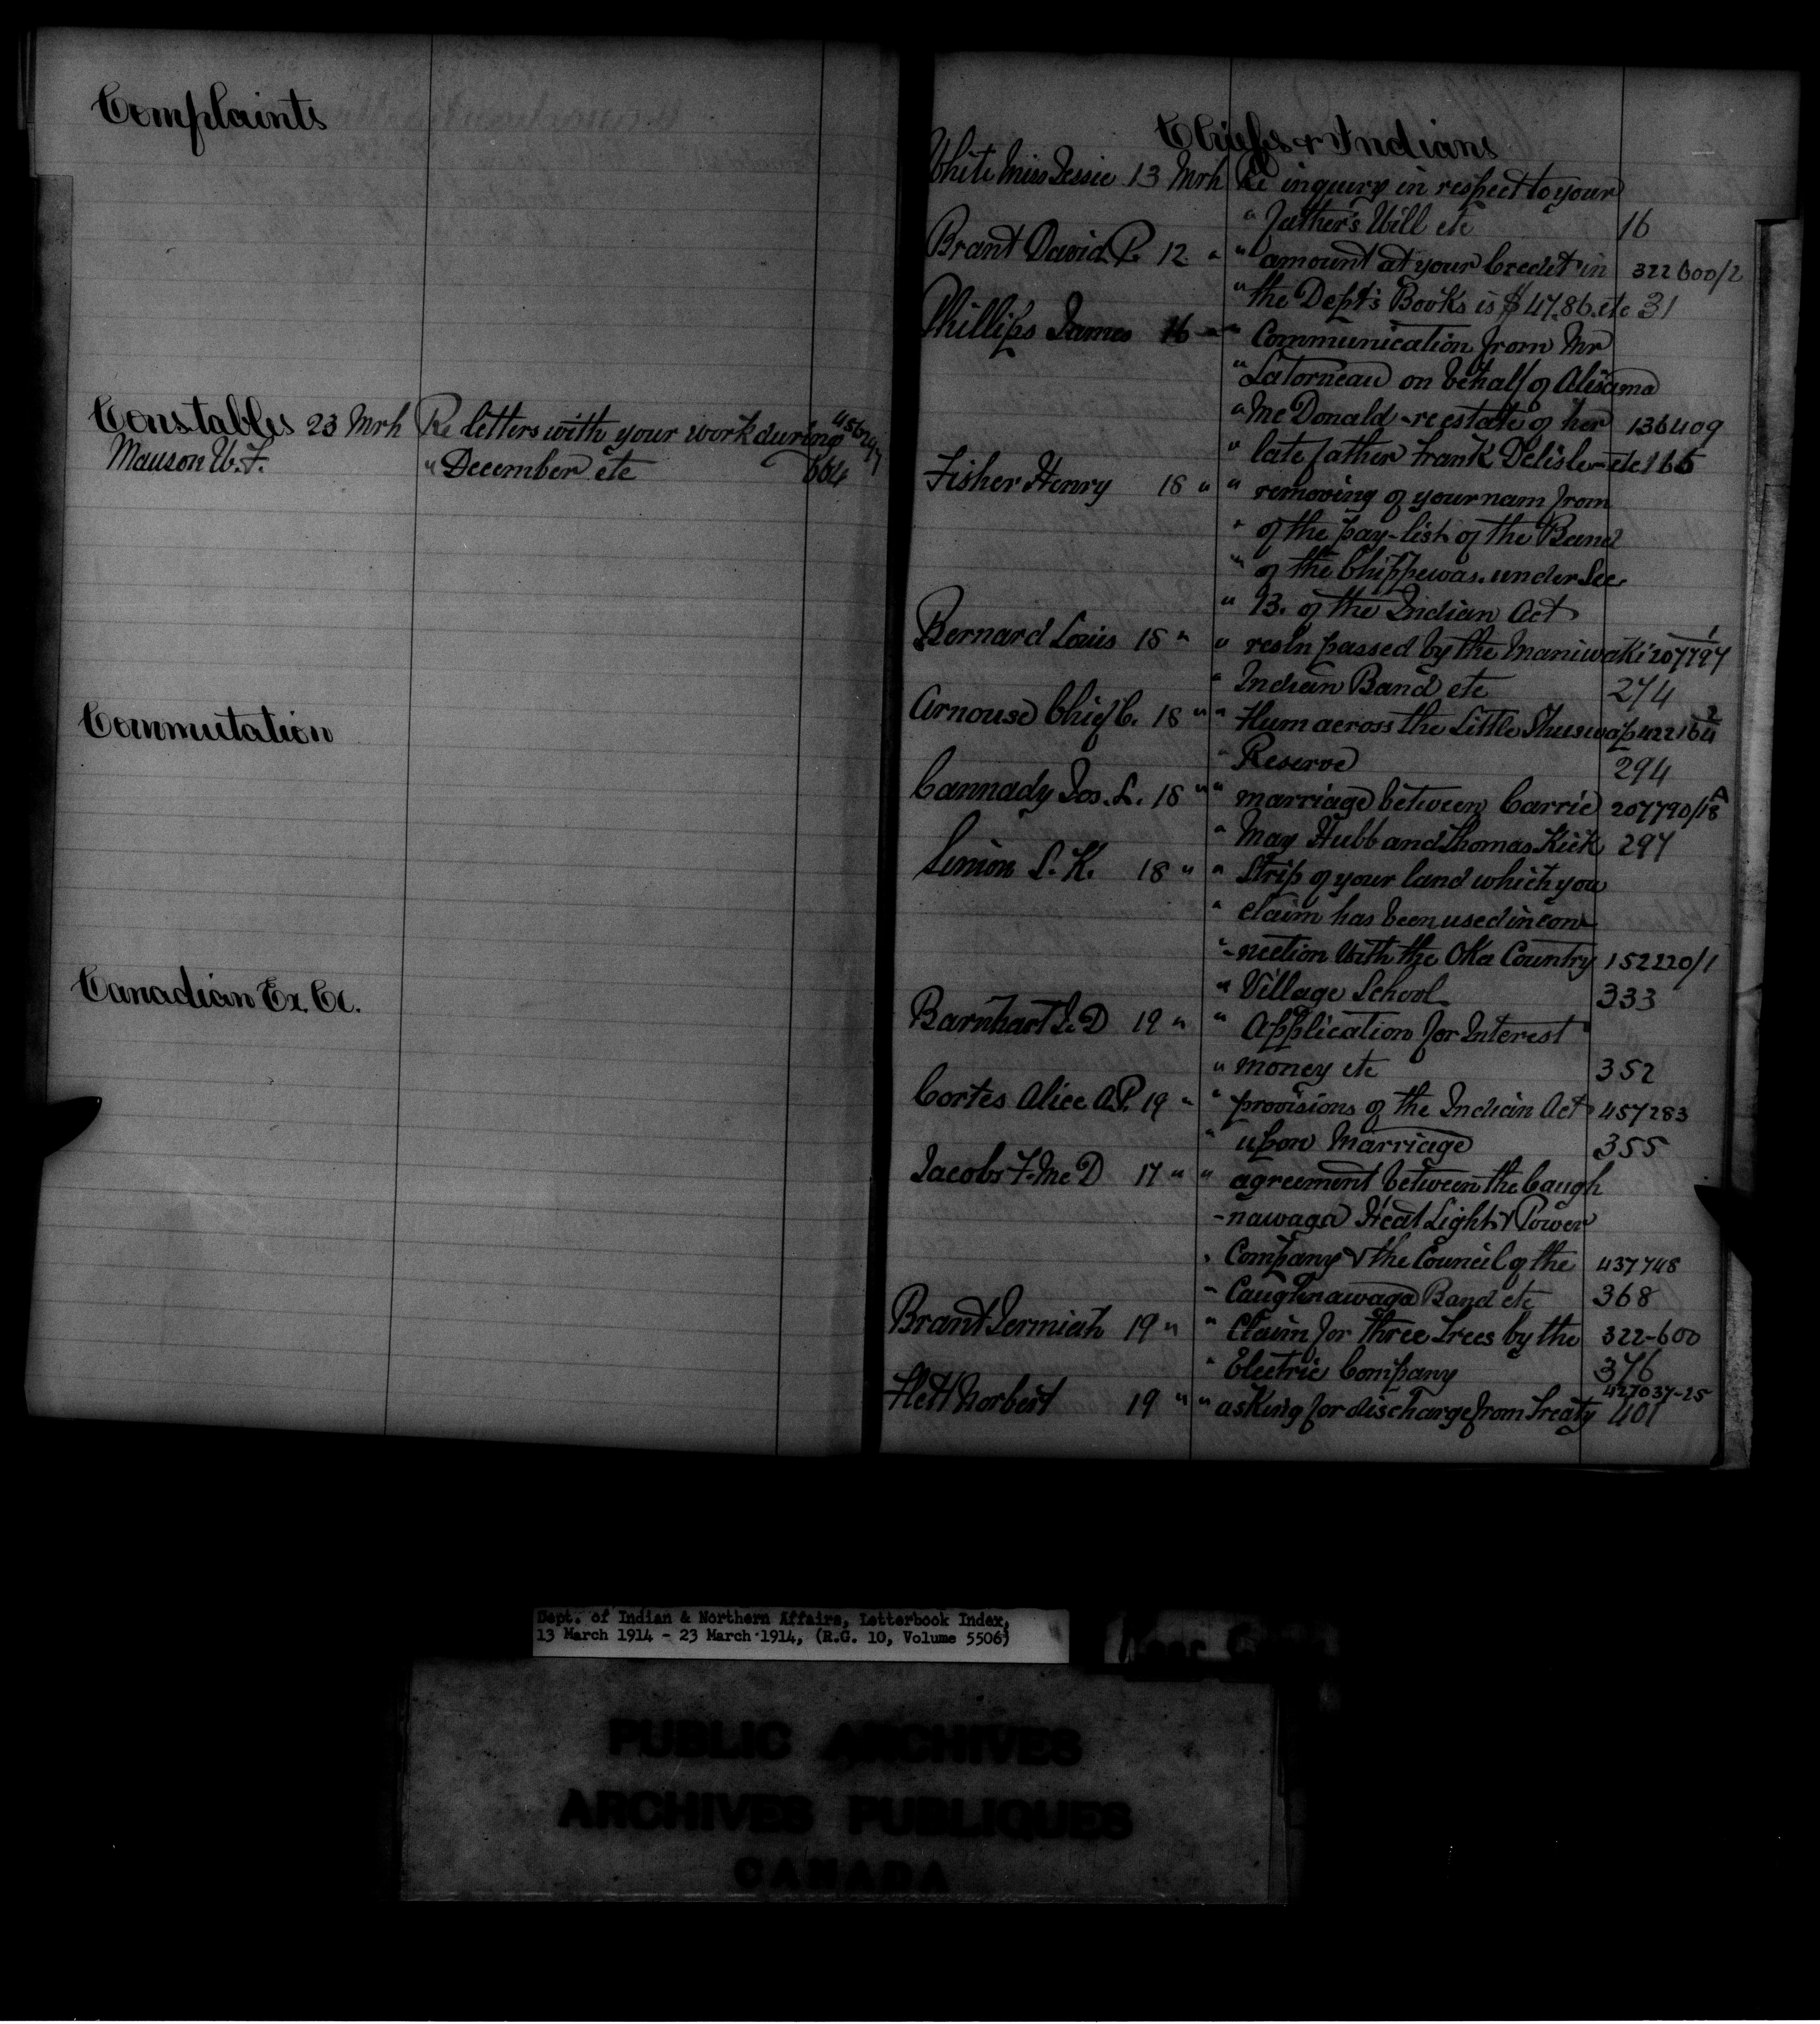 Complaints
Constables 23 Mrh Re letters with your work during 456247
Manson W. F. " December etc 664
Commutation
Canadian Ex. Co.
Chiefs & Indians
White Miss Jessie 13 Mrh Re inquiry in respect to your
" Father's Will etc 16
Brant David P. 12 " " amount at your Credit in 322600/2
" the Dept's Books is $47.86 etc 31
Phillips James 16 " " Communication from Mr
" Latorneau on behalf of
" McDonald - re estate of her 136409
" late father Frank Delisle - etc 166
Fisher Henry 18 " " removing of your nam from
" of the pay-list of the Band
" of the Chippewas. under Sec
" 13. of the Indian Act
Bernard Louis 18 " " resln passed by the Maniwaki 207797/1
" Indian Band etc 274
Arnouse Chief C. 18 " " across the Little Shuswap 422164/2
" Reserve 294
Cannady Jos. L. 18 " " marriage between Carrie 207790/18A
" May Hubb and Thomas Kick 297
Simon S. K. 18 " " Strip of your land which you
" claim has been used in con-
" -nection with the Oka Country 152220/1
" Village School 333
Barnhart 19 " " Application for Interest
" money etc 352
Cortes Alice A.P. 19 " " provisions of the Indian Act 457283
" upon Marriage 355
Jacobs F. Mc D 17 " " agreement between the Caugh
-nawaga Heat Light & Power
" Company & the Council of the 437748
" Caughnawaga Band etc 368
Brant Jermiah 19 " " Claim for three Trees by the 322-600
" Electric Company 376
Flett Norbert 19 " " asking for discharge from Treaty 427037-25 401
Dept. of Indian & Northern Affairs, Letterbook Index,
13 March 1914 - 23 March 1914, (R.G. 10, Volume 5506)
PUBLIC ARCHIVES
ARCHIVES PUBLIQUES
CANADA